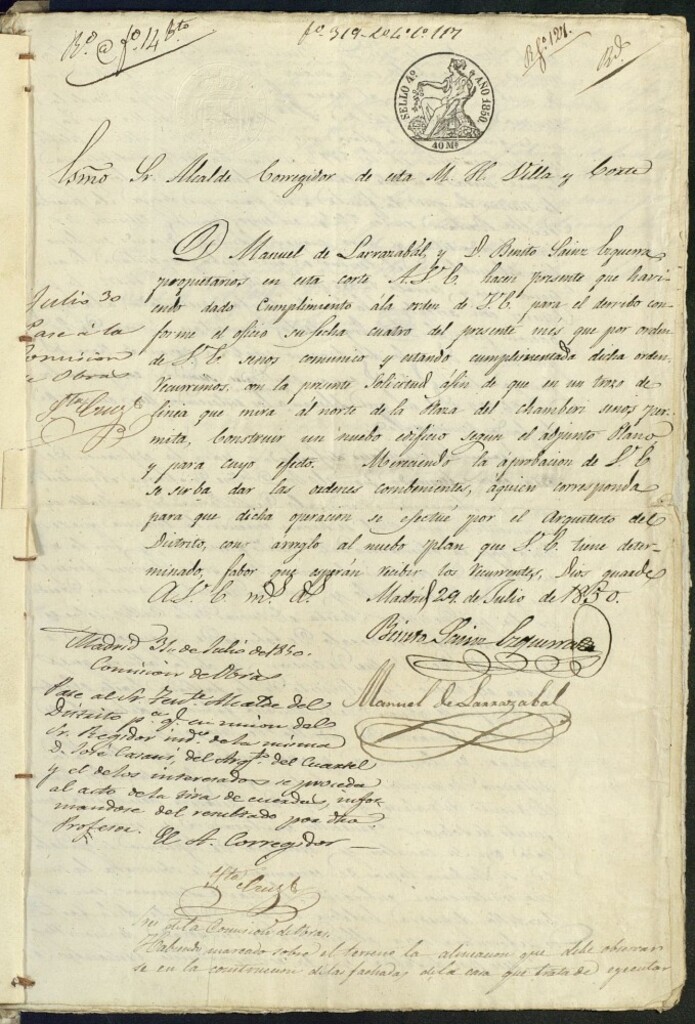 Rº @ fº 14 Bto
fº 319 - 2º Lº Cº 117
R. Sº 127.
Rd
SELLO 4º AÑO 1850.
40 Ms
Esmo Sr. Alcalde Corregidor de esta M. H. Villa y Corte
D Manuel de Larrazabál, y D. Benito Sainz Ezguerra
propietarios en esta corte A. S. E. hacen presente que havi-
endo dado Cumplimiento ála orden de V. E. para el derribo con-
forme el oficio su fecha cuatro del presente mes que por orden
de S. E. senos comunico y estando cumplimentada dicha orden
Recurrimos. con la presente Solicitud áfin de que en un trozo de
linea que mira ál norte de la Plaza del chamberi senos per-
mita, Construir un nuebo edificio segun el ádjunto Plano
y para cuyo efecto. Mereciendo la áprobacion de S. E.
se sirba dar las ordenes combenientes, áquien corresponda
para que dicha operacion se efectúe por el Arquitecto del
Distrito, con árreglo al nuebo plan que S. E. tiene deter-
minado, fabor que esperán recibir los Recurrentes, Dios guarde
A. S. E. ms. as. Madrid 29 de Julio de 1850.
Julio 30
Pase á la
Comision
de Obras
Sta Cruz
Benito Sainz Ezguerra
Manuel de Larrazabal
Madrid 31 de Julio de 1850.
Comision de Obras
Pase al Sr. Tente. Alcalde del
Distrito pa. q. en union del
Sr. Regidor indo. de la misma
D. José Casani, del Arqto. del Cuartel
y el de los interesados se proceda
al acto de la tira de cuerdas, infor-
mandose del resultado por dho.
Profesor. El A. Corregidor
Sta Cruz
Sres de la Comision de Obras.
Habiendo marcado sobre el terreno la alineacion que debe observar
se en la construccion de las fachadas de la casa que trata de egecutar